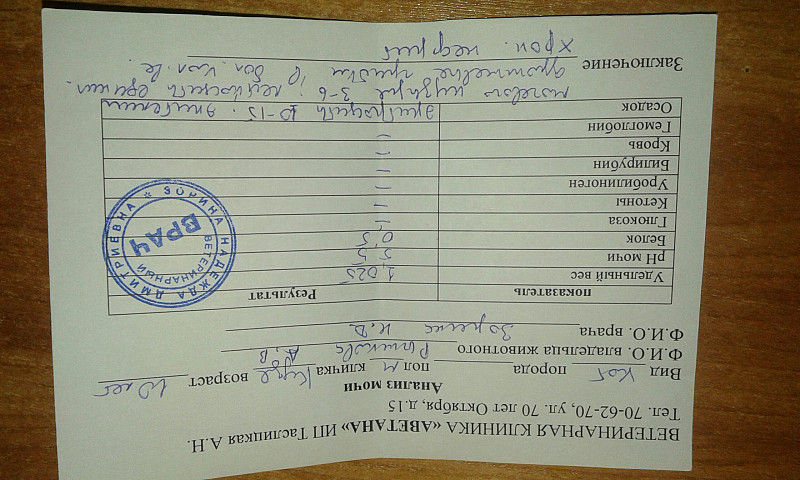 ВЕТЕРИНАРНАЯ КЛИНИКА «АВЕТАНА» ИП Таслицкая А.Н.
Тел. 70-62-70, ул. 70 лет Октября, д.15
Анализ мочи
Вид кот порода пол м кличка возраст 10 лет
Ф.И.О. Владельца животного А.В
Ф.И.О. врача Зорина Н.Д.
показатель Результат
Удельный вес 1,025
pH мочи 5,5
Белок 0,5
Глюкоза –
Кетоны –
Уробилиноген –
Билирубин –
Кровь –
Гемоглобин –
Осадок эритроциты 10-15; эпителий
мочевого пузыря 3-6; лейкоциты единич.
Заключение хрон. нефрит
ЗОРИНА НАДЕЖДА ДМИТРИЕВНА
ВЕТЕРИНАРНЫЙ
ВРАЧ